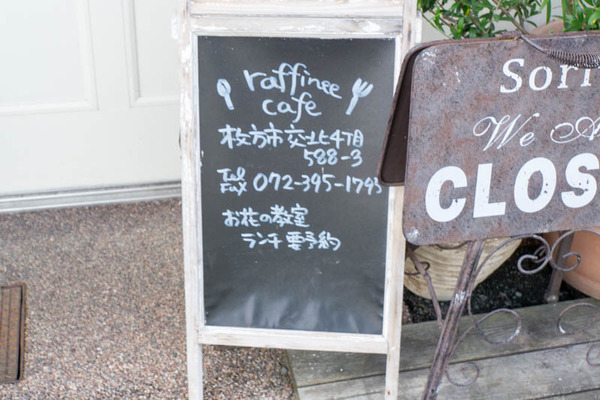 raffinee
cafe
枚方市交北4丁目
588-3
Tel
Fax 072-395-1793
お花の教室
ランチ要予約
Sorr
We A
CLOS